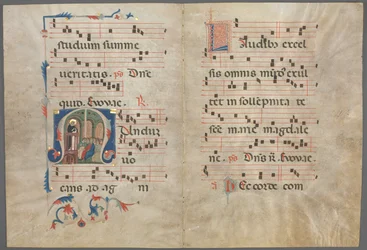 studium summe
ueritatis. ps Dñe
quid. Euouae. R.
uo
cans ad ag ni
Laudib; excel
sis omnis mūd; exul
tet in sollēpnita te
sce marie magdale
ne. ps Dñs r. Euouae.
Hec corde com